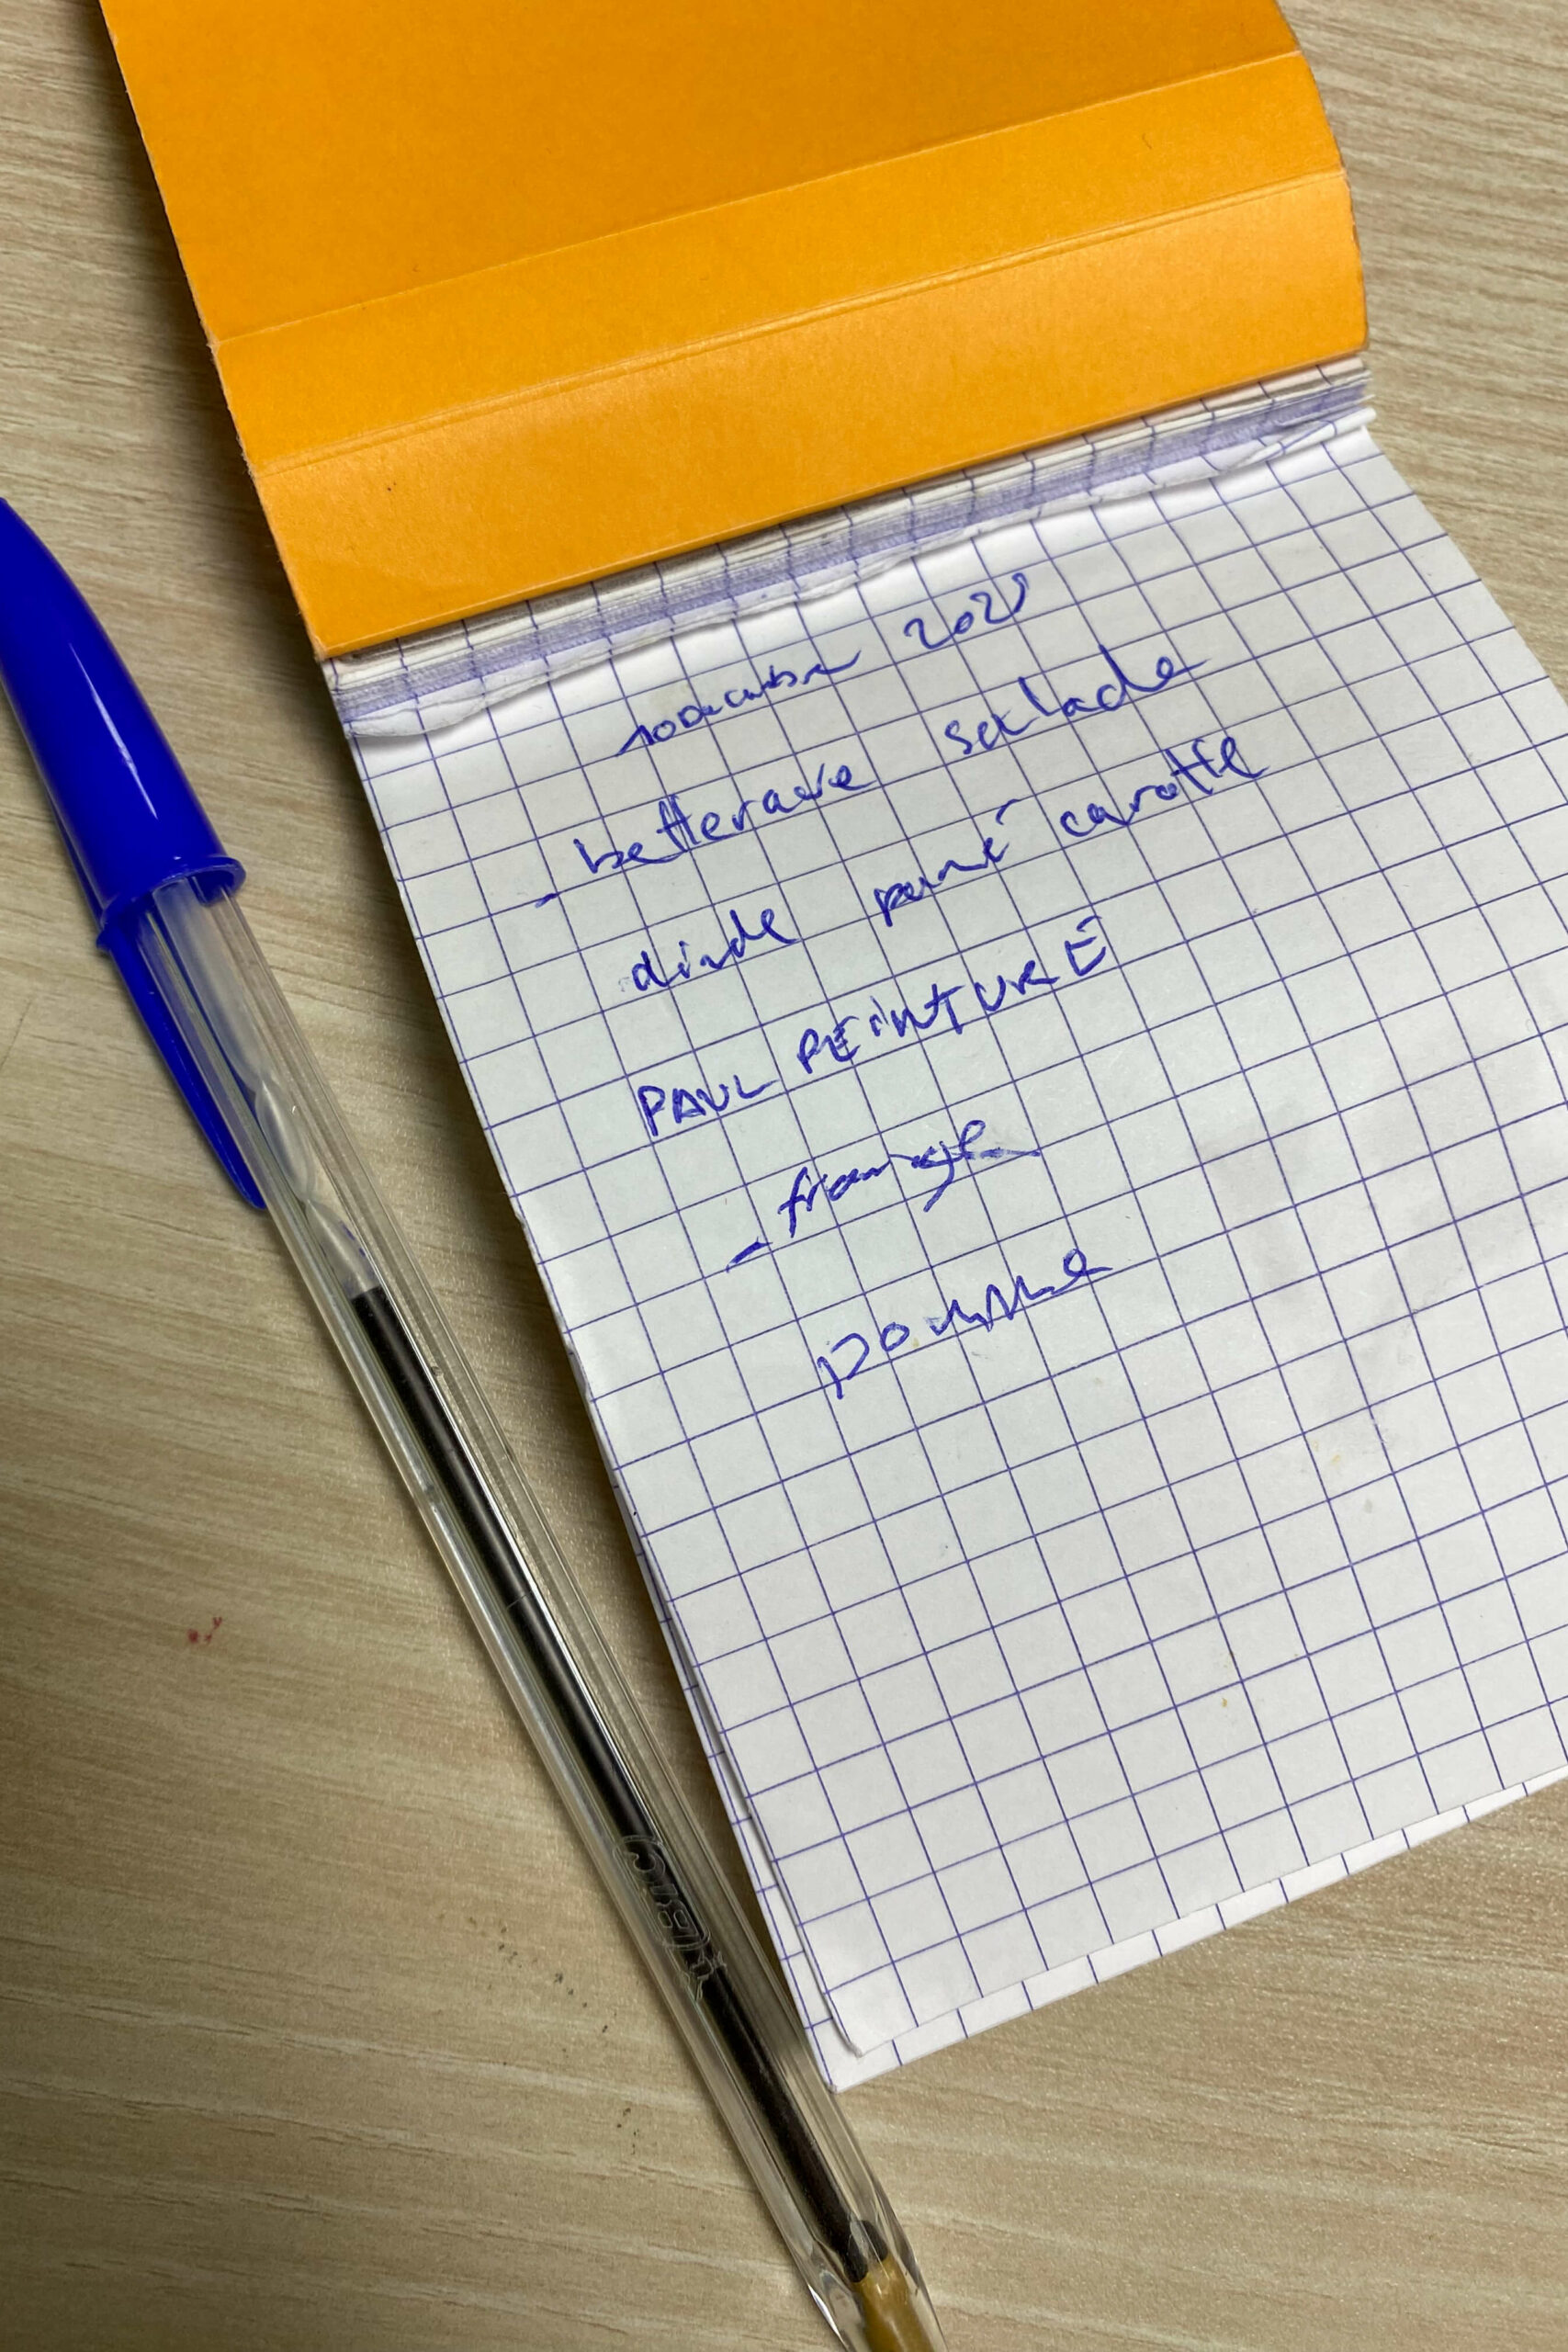 10 Décembre 202
- betterave salade
dinde pané carotte
PAUL PEINTURE
- fromage
pomme
BIC